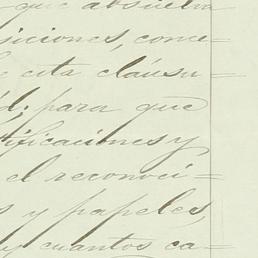 que absuelva
siciones, come=
e esta cláusu=
d; para que
tificaciones y
el reconoci=
s y papeles,
y cuantos ca=